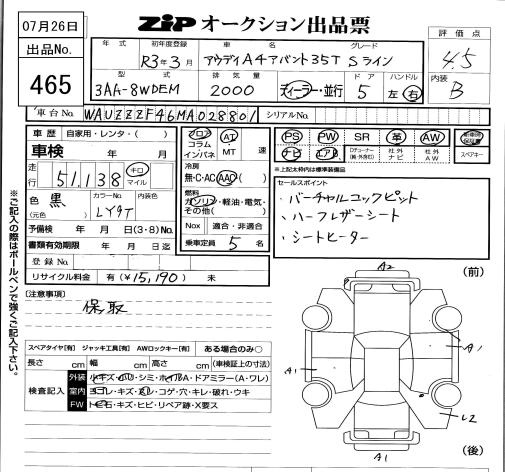 07月26日
ZiP オークション出品票
出品No.
465
評価点
4.5
内装
B
年式 初年度登録 車名 グレード
R3年3月 アウディA4アバント35T Sライン
型式 排気量 ドア ハンドル
3AA-8WDEM 2000 ディーラー・並行 5 左 右
車台No. WAUZZZF46MA028801 シリアルNo.
車歴 自家用・レンタ・( )
車検 年 月
走行 51,138 キロ マイル
色 黒 カラーNo. LY9T 内装色
(元色)
予備検 年 月 日(3・8)No.
書類有効期限 年 月 日迄
登録No.
リサイクル料金 有(¥15,190) 未
フロア コラム インパネ AT ・MT 速
冷房
無・C・AC・AAC
燃料
ガソリン・軽油・電気・その他( )
Nox 適合・非適合
乗車定員 5 名
PS PW SR 革 AW 新車時保証書
ナビ エアB Dチューナー(純・外含む) 社外ナビ 社外AW スペアキー
※上記太枠内は標準装備品
セールスポイント
・バーチャルコックピット
・ハーフレザーシート
・シートヒーター
※ご記入の際はボールペンで強くご記入下さい。
[注意事項]
保取
スペアタイヤ[有] ジャッキ工具[有] AWロックキー[有] ある場合のみ○
長さ cm 幅 cm 高さ cm (車検証上の寸法)
検査記入
外装 小キズ・凹・シミ・ホイルA・ドアミラー(A・ワレ)
室内 ヨゴレ・キズ・・コゲ・穴・キレ・破れ・ウキ
FW トビ石・キズ・ヒビ・リペア跡・X要ス
(前)
A2
A1
A1
L2
A1
(後)